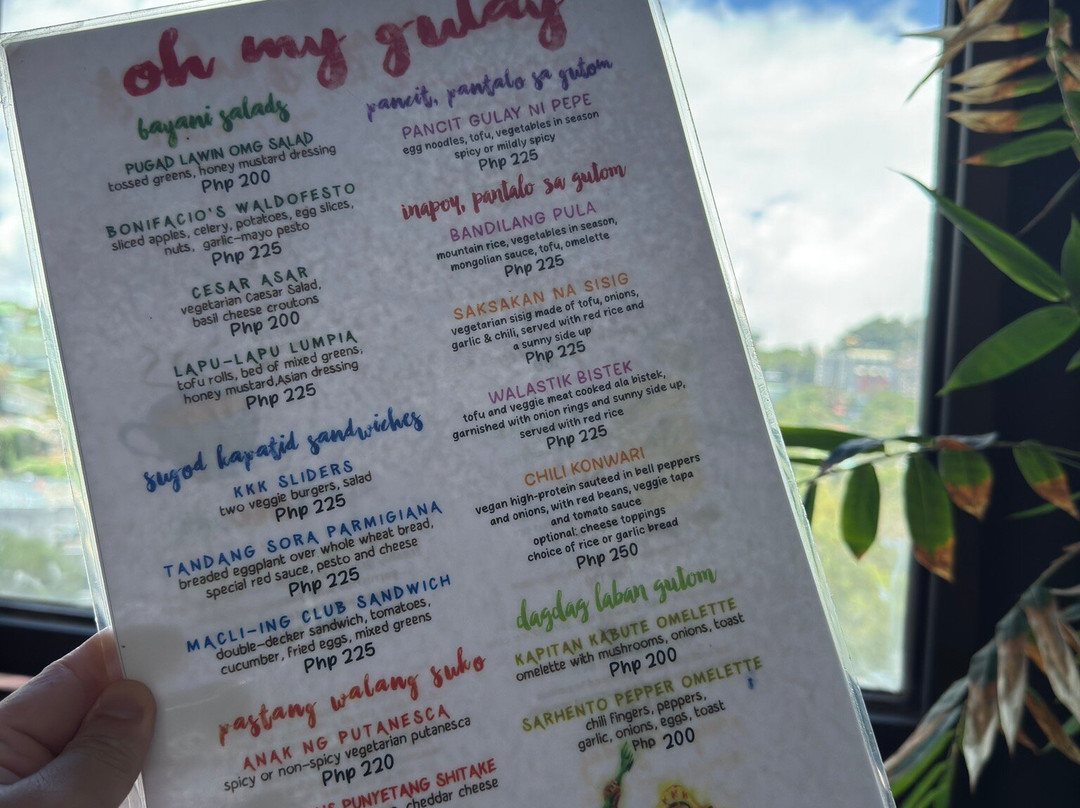 oh my gulay
bayani salads
PUGAD LAWIN OMG SALAD
tossed greens, honey mustard dressing
Php 200
BONIFACIO'S WALDOFESTO
sliced apples, celery, potatoes, egg slices,
nuts, garlic-mayo pesto
Php 225
CESAR ASAR
vegetarian Caesar Salad,
basil cheese croutons
Php 200
LAPU-LAPU LUMPIA
tofu rolls, bed of mixed greens,
honey mustard,Asian dressing
Php 225
sugod kapatid sandwiches
KKK SLIDERS
two veggie burgers, salad
Php 225
TANDANG SORA PARMIGIANA
breaded eggplant over whole wheat bread,
special red sauce, pesto and cheese
Php 225
MACLI-ING CLUB SANDWICH
double-decker sandwich, tomatoes,
cucumber, fried eggs, mixed greens
Php 225
pastang walang suko
ANAK NG PUTANESCA
spicy or non-spicy vegetarian putanesca
Php 220
PUNYETANG SHITAKE
cheddar cheese
pancit, pantalo sa gutom
PANCIT GULAY NI PEPE
egg noodles, tofu, vegetables in season
spicy or mildly spicy
Php 225
inapoy, pantalo sa gutom
BANDILANG PULA
mountain rice, vegetables in season,
mongolian sauce, tofu, omelette
Php 225
SAKSAKAN NA SISIG
vegetarian sisig made of tofu, onions,
garlic & chili, served with red rice and
a sunny side up
Php 225
WALASTIK BISTEK
tofu and veggie meat cooked ala bistek,
garnished with onion rings and sunny side up,
served with red rice
Php 225
CHILI KONWARI
vegan high-protein sauteed in bell peppers
and onions, with red beans, veggie tapa
and tomato sauce
optional: cheese toppings
choice of rice or garlic bread
Php 250
dagdag laban gutom
KAPITAN KABUTE OMELETTE
omelette with mushrooms, onions, toast
Php 200
SARHENTO PEPPER OMELETTE
chili fingers, peppers,
garlic, onions, eggs, toast
Php 200